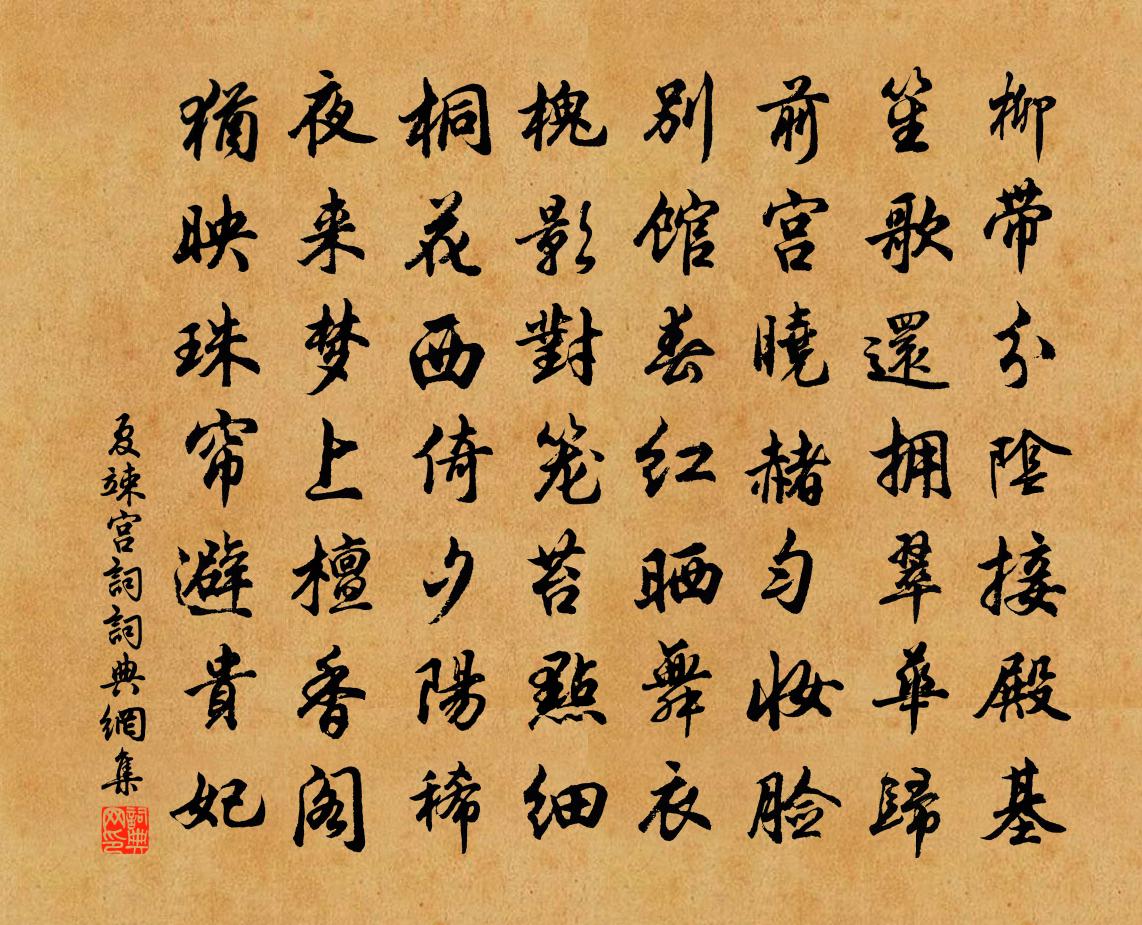 柳带分陰接殿基
笙歌還拥翠華歸
前宫曉赭匀妝脸
别馆春红晒舞衣
槐影對笼苔點细
桐花西倚夕陽稀
夜来梦上檀香阁
猶映珠帘避貴妃
夏竦宫詞詞典網集
詞典网印